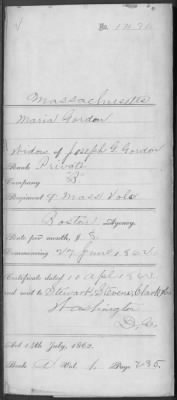 No.
Massachusetts
Maria Gordon
Widow of Joseph G. Gordon
Rank Private
Company "B"
Regiment 9 Mass Vols
Boston Agency.
Rate per month, $ 8.
Commencing 27 June 1862
Certificate dated 10 Apl 1863
and sent to Stewart, Stevens, Clark &
Washington
D.C.
Act 14th July, 1862.
Book Vol. Page 235.